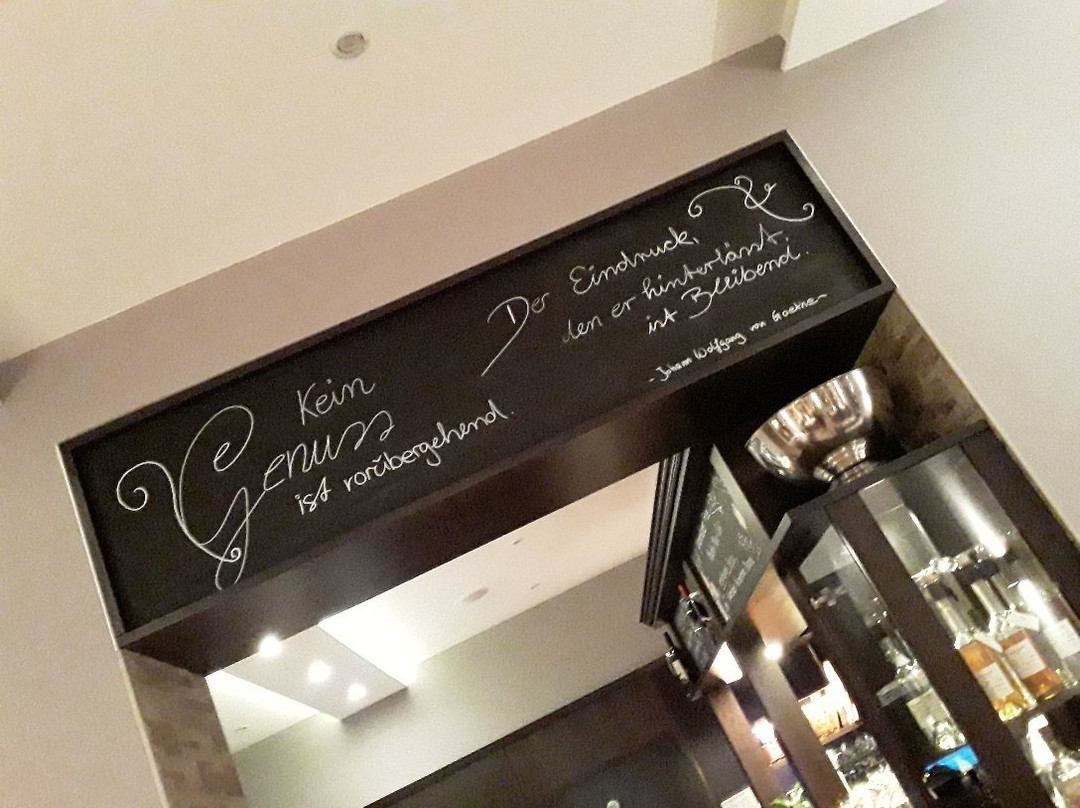 Kein
Genuss
ist vorübergehend.
Der Eindruck,
den er hinterlässt,
ist Bleibend.
- Johann Wolfgang von Goethe -